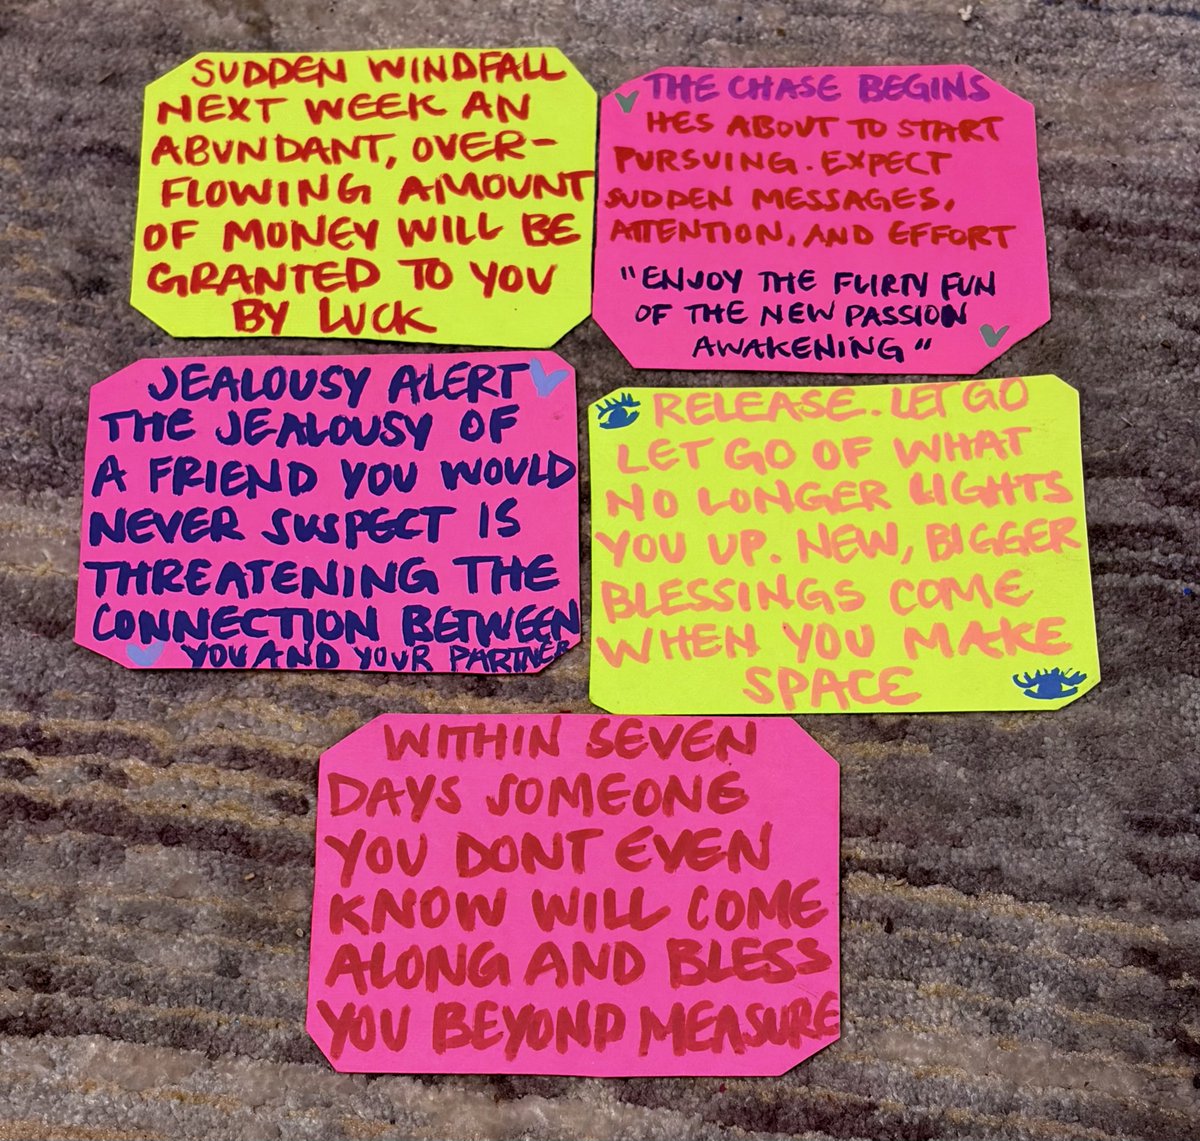 SUDDEN WINDFALL
NEXT WEEK AN
ABUNDANT, OVER-
FLOWING AMOUNT
OF MONEY WILL BE
GRANTED TO YOU
BY LUCK
THE CHASE BEGINS
HES ABOUT TO START
PURSUING. EXPECT
SUDDEN MESSAGES,
ATTENTION, AND EFFORT
"ENJOY THE FLIRTY FUN
OF THE NEW PASSION
AWAKENING"
JEALOUSY ALERT
THE JEALOUSY OF
A FRIEND YOU WOULD
NEVER SUSPECT IS
THREATENING THE
CONNECTION BETWEEN
YOU AND YOUR PARTNER
RELEASE. LET GO
LET GO OF WHAT
NO LONGER LIGHTS
YOU UP. NEW, BIGGER
BLESSINGS COME
WHEN YOU MAKE
SPACE
WITHIN SEVEN
DAYS SOMEONE
YOU DONT EVEN
KNOW WILL COME
ALONG AND BLESS
YOU BEYOND MEASURE